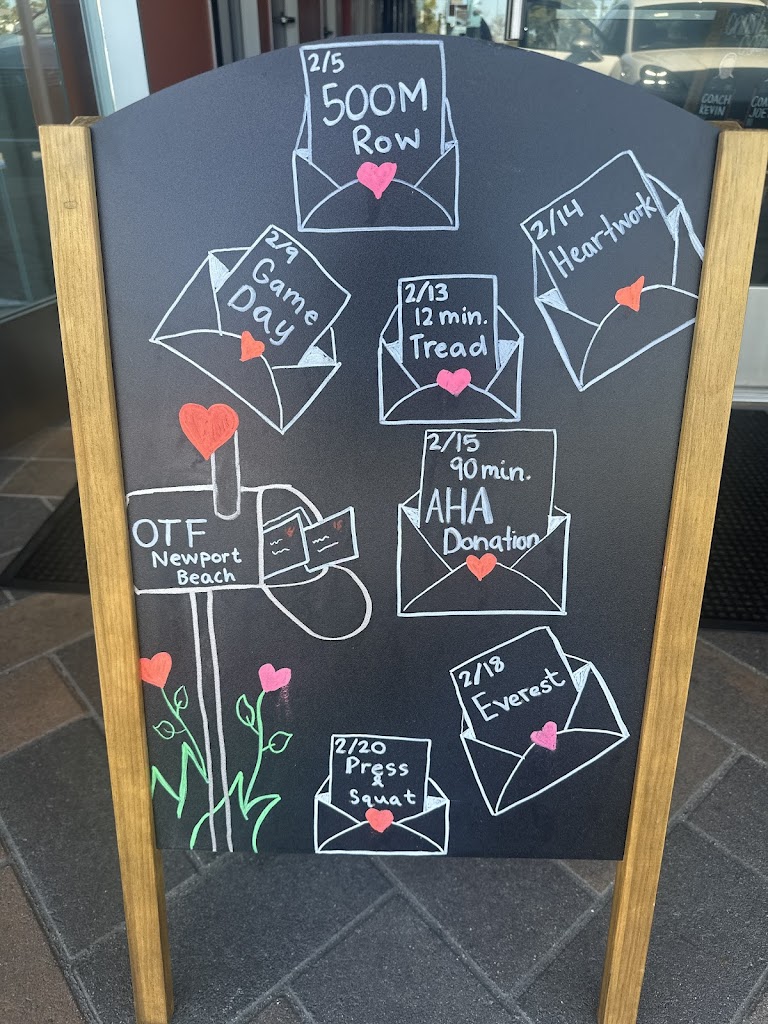 2/5
500M
Row
2/14
Heartwork
2/9
Game
Day
2/13
12 min.
Tread
2/15
90 min.
AHA
Donation
OTF
Newport
Beach
2/18
Everest
2/20
Press
&
Squat
COACH
KEVIN